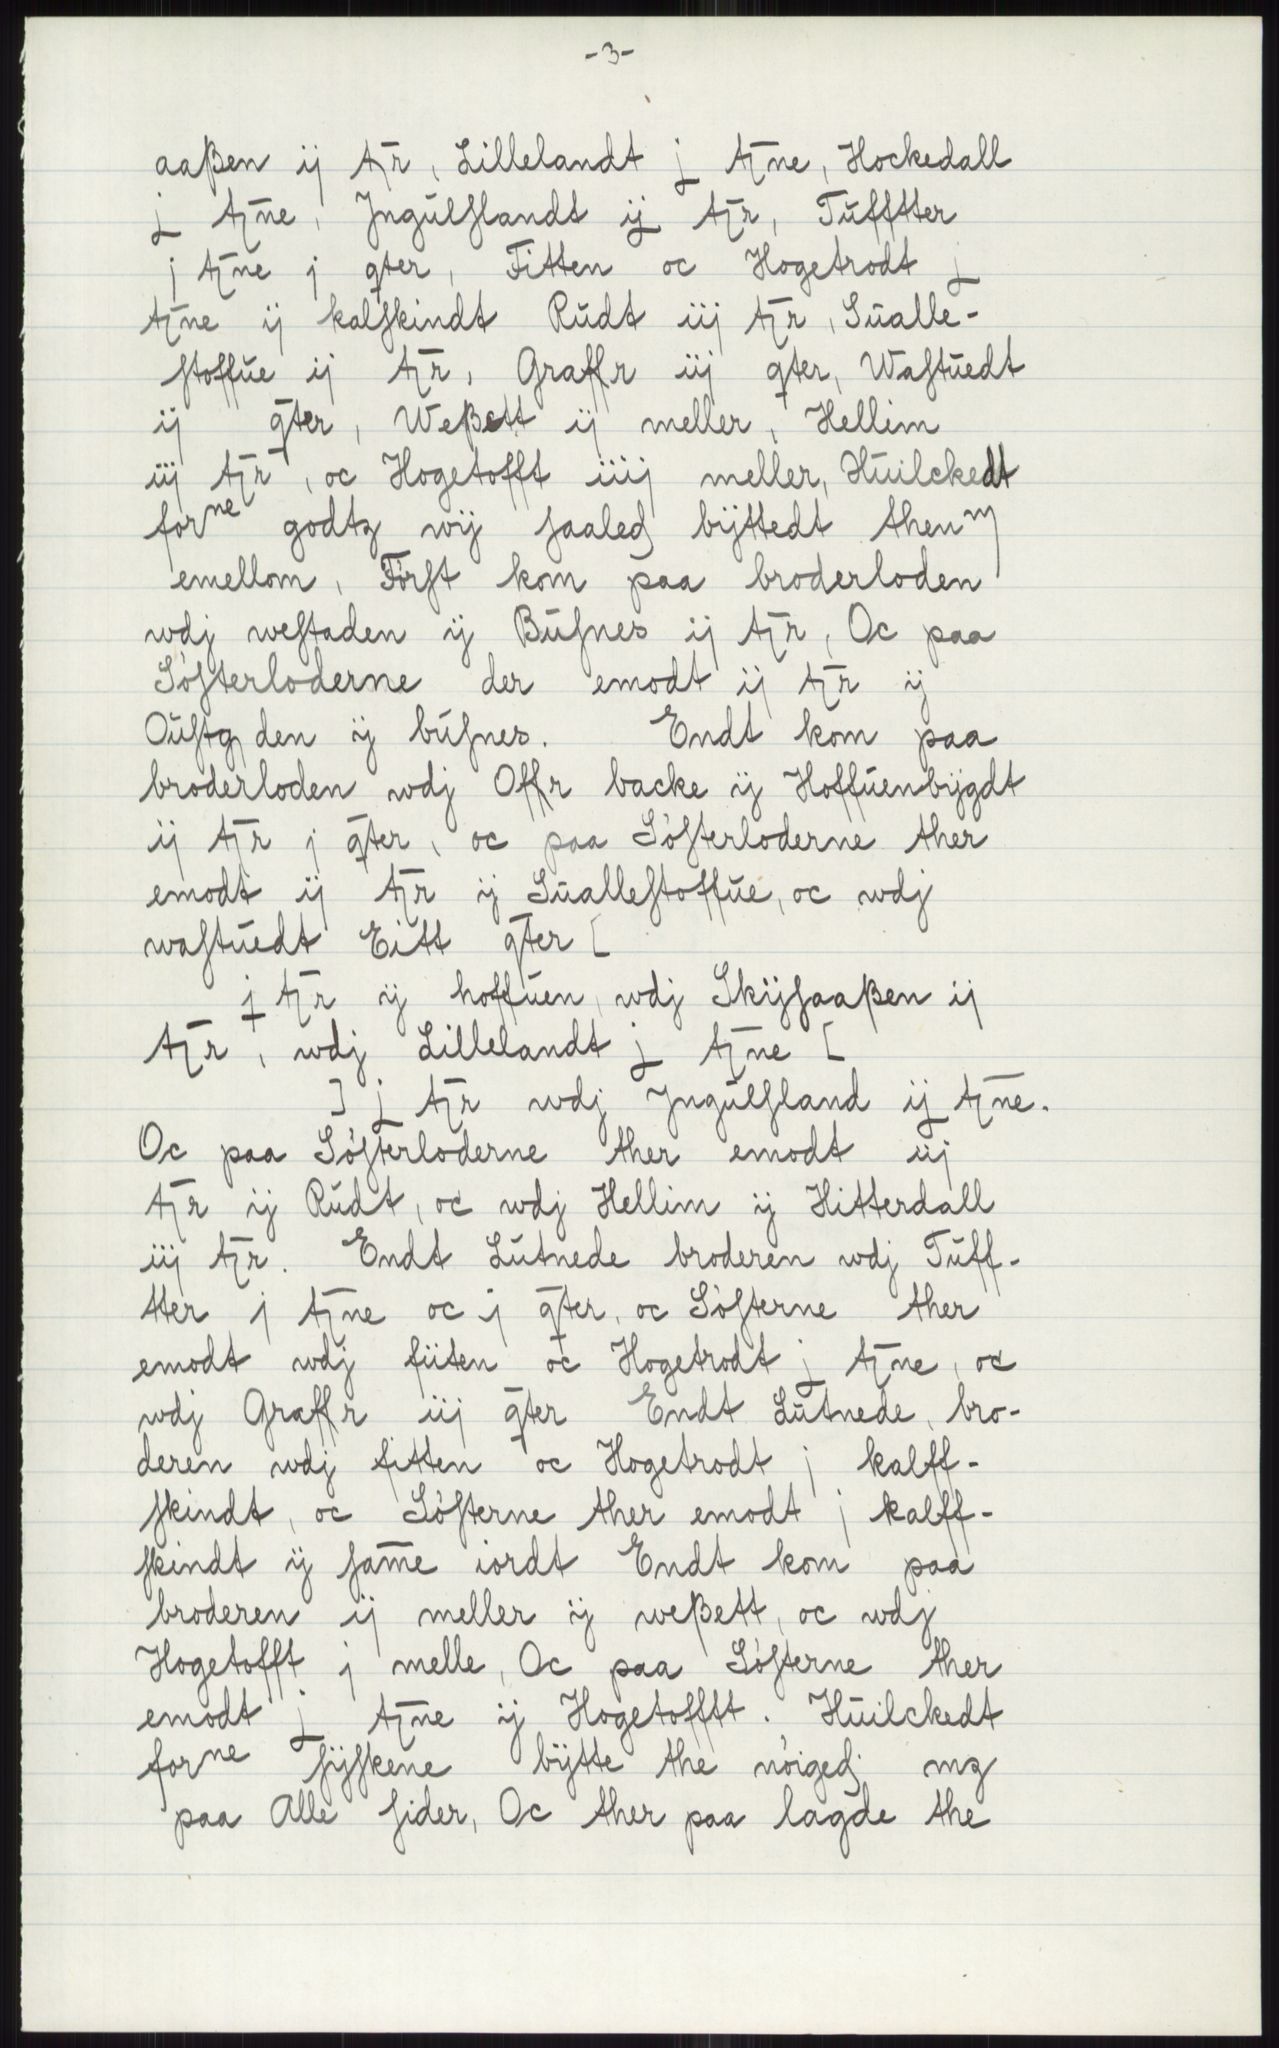 -3-
aaßen ij tr̄, Lillelandt j tn̄e, Hockedall
j tn̄e, Jngúlslandt ij tr̄, Túfftter
j tn̄e j qter, Fitten oc Hogetrodt j
tn̄e ij kalskindt Rúdt iij tr̄, Súalle-
stoffúe ij tr̄, Graffr iij qter, Wastúedt
ij qter, Weßett ij meller, Hellim
iij tr̄, oc Hogetofft iiij meller, Húilckedt
forne godtz wij saaleds bÿttedt thenm
emellom, Först kom paa broderloden
wdj westaden ij Búsnes ij tr̄, Oc paa
Sösterloderne der emodt ij tr̄ ij
Oústg den ij búsnes. Endt kom paa
broderloden wdj Offr backe ij Hoffúenbÿgdt
ij tr̄ j qter, oc paa Sösterloderne ther
emodt ij tr̄ ij Súallestoffúe, oc wdj
wastúedt Eitt qter [
j tr̄ ij hoffúen, wdj Skÿsaaßen ij
tr̄, wdj Lillelandt j tn̄e [
] j tr̄ wdj Jngúlsland ij tn̄e.
Oc paa Sösterloderne ther emodt iij
tr̄ ij Rúdt, oc wdj Hellim ij Hitterdall
iij tr̄. Endt Lútnede broderen wdj Túff-
tter j tn̄e oc j qter, oc Sösterne ther
emodt wdj fiiten oc Hogetrodt j tn̄e, oc
wdj Graffr iij qter Endt Lútnede, bro-
deren wdj fitten oc Hogetrodt j kalff-
skindt, oc Sösterne ther emodt j kalff-
skindt ij sam̄e iordt Endt kom paa
broderen ij meller ij weßett, oc wdj
Hogetofft j melle, Oc paa Sösterne ther
emodt j tn̄e ij Hogetofftt. Húilckedt
forne sÿskene bÿtte the nöigeds mz
paa Alle sider, Oc ther paa lagde the